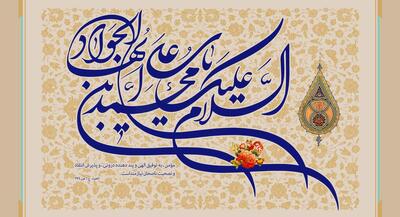 السلام علیک یا محمد بن علی ایها الجواد
مؤمن، به توفیق الهی و پند دهنده درونی، و پذیرش انتقاد
و نصیحت ناصحان نیازمند است.